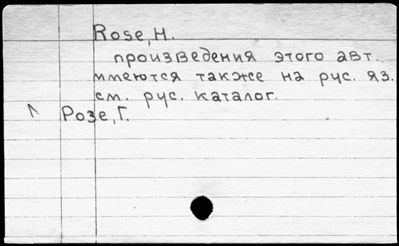 Rose, H.
произведения этого авт.
имеются также на рус. яз.
см. рус. каталог.
Розе, Г.